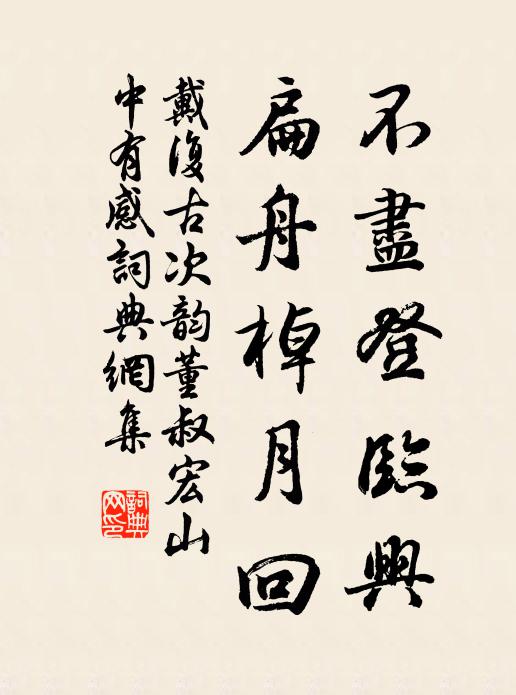 不盡登臨興
扁舟棹月回
戴復古次韵董叔宏山
中有感詞典網集
詞典网印